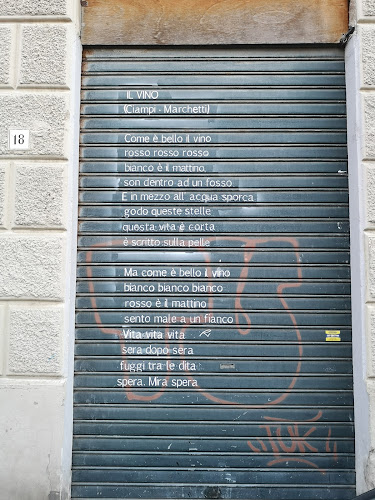 IL VINO
(Ciampi - Marchetti)
Come è bello il vino
rosso rosso rosso
bianco è il mattino,
son dentro ad un fosso.
E in mezzo all' acqua sporca
godo queste stelle
questa vita è corta
è scritto sulla pelle
Ma come è bello il vino
bianco bianco bianco
rosso è il mattino
sento male a un fianco
Vita vita vita
sera dopo sera
fuggi tra le dita
spera. Mira spera
18
"TUK"